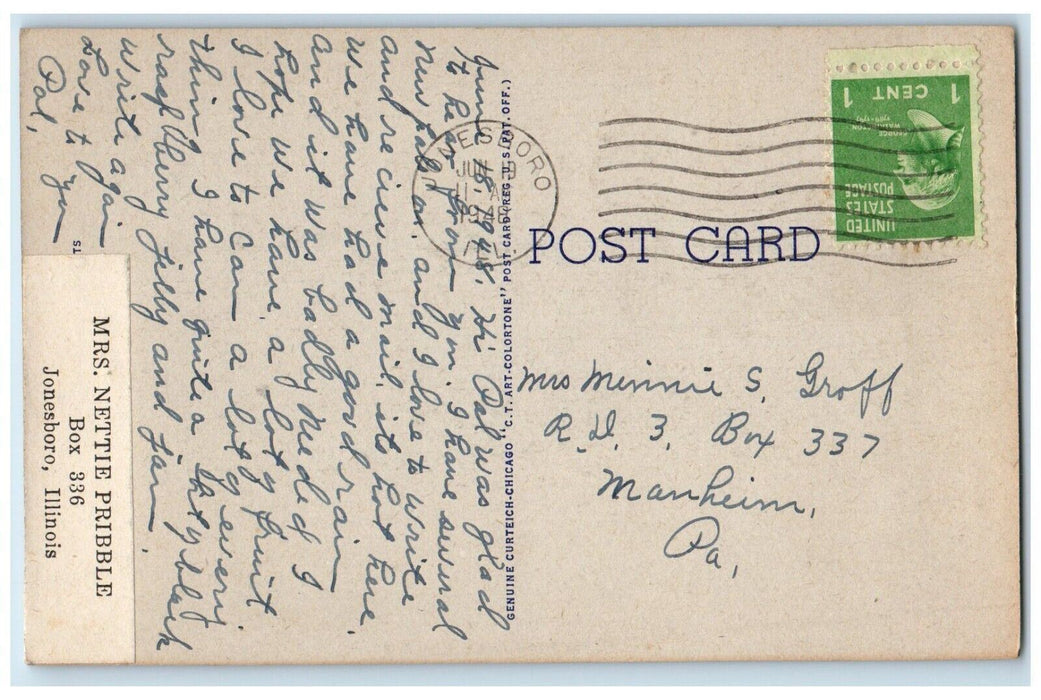 June 18, 1948, Hi Pal was glad
to hear from you. I have several
new pals on, and I love to write
and recieve mail, its hot here.
We have had a good rain
and it was badly Neded I
hope we have a lot of fruit
I love to Can a lot of every
thing I have quite a bit of black
raspberry Jelly and Jam.
write again
Love to you
Pal,
IS
MRS. NETTIE PRIBBLE
Box 336
Jonesboro, Illinois
GENUINE CURTEICH-CHICAGO "C.T. ART-COLORTONE" POST CARD (REG. U.S. PAT. OFF.)
NESBORO
JUN
1948
POST CARD
UNITED
STATES
POSTAGE
GEORGE
WASHINGTON
1789-1797
1 CENT 1
Mrs Minnie S. Groff
R.D. 3, Box 337
Manheim,
Pa,